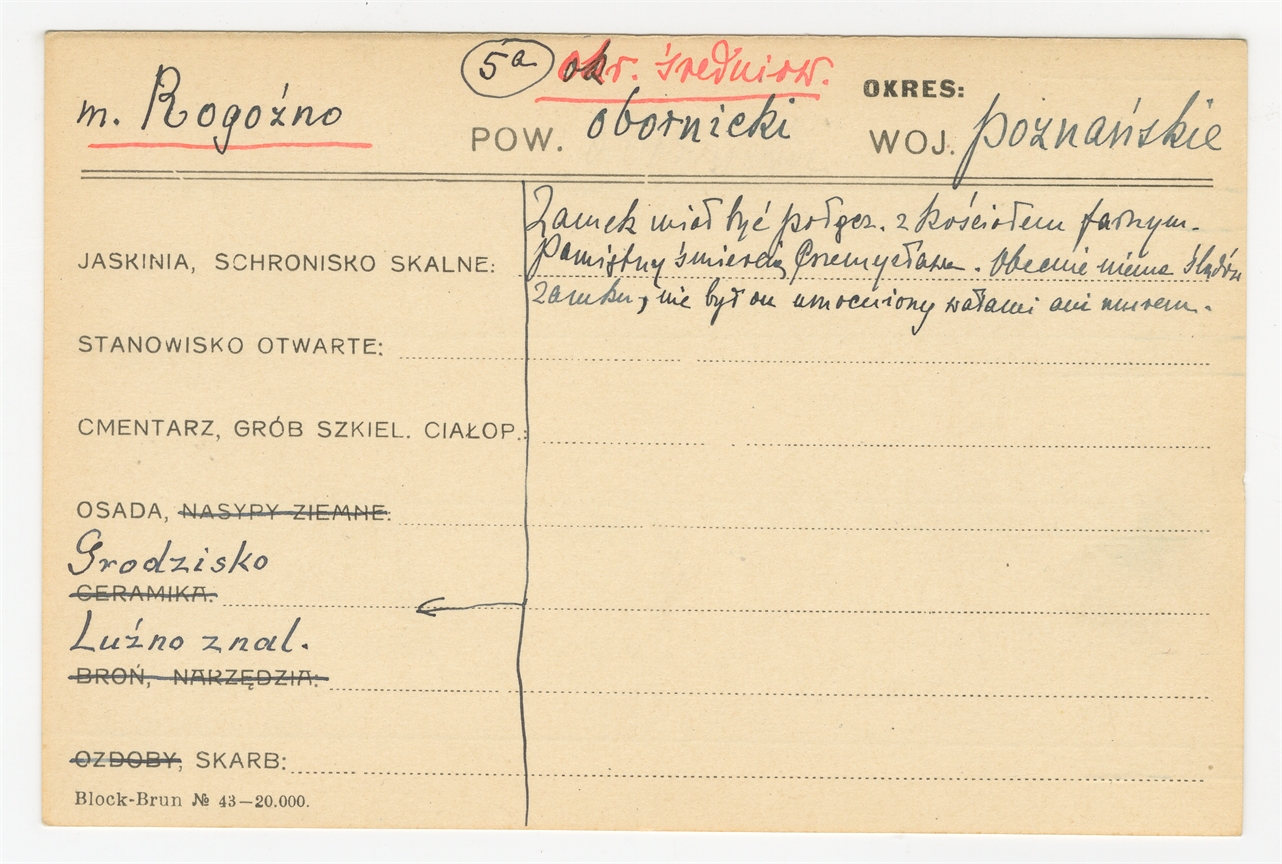 5a okr. średniow.
OKRES:
m. Rogoźno POW. obornicki WOJ. poznańskie
Zamek miał być połącz. z kościołem farnym.
JASKINIA, SCHRONISKO SKALNE: Pamiętny śmiercią Przemysława. Obecnie niema śladów
zamku, nie był on umocniony wałami ani murem.
STANOWISKO OTWARTE:
CMENTARZ, GRÓB SZKIEL. CIAŁOP.:
OSADA, NASYPY ZIEMNE:
Grodzisko
CERAMIKA:
Luźno znal.
BROŃ, NARZĘDZIA:
OZDOBY, SKARB:
Block-Brun № 43—20.000.